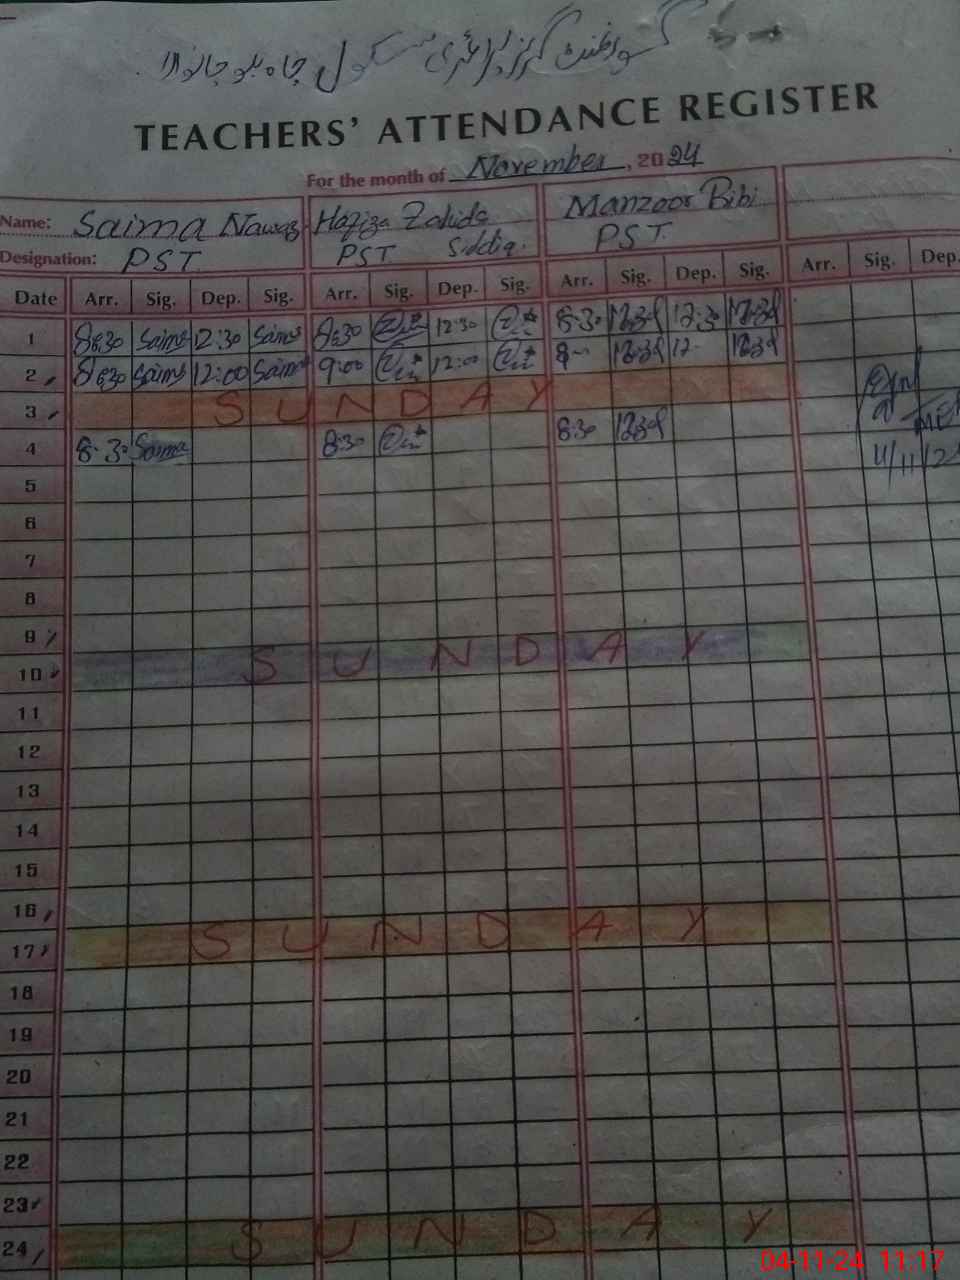 گورنمنٹ گرلز پرائمری سکول چاہ بلوچانوالا
TEACHERS' ATTENDANCE REGISTER
For the month of November, 2024
Name: Saima Nawaz Hafiza Zahida Manzoor Bibi
Designation: PST. PST Siddiq. PST.
Date Arr. Sig. Dep. Sig. Arr. Sig. Dep. Sig. Arr. Sig. Dep. Sig. Arr. Sig. Dep.
1 8:30 Saima 12:30 Saima 8:30 12:30 8:30 12:30
2 8:30 Saima 12:00 Saima 9:00 12:00 8- 12-
3 SUNDAY
4 8:30 Saima 8:30 8:30 4/11/24
5
6
7
8
9
10 SUNDAY
11
12
13
14
15
16
17 SUNDAY
18
19
20
21
22
23
24 SUNDAY
04-11-24 11:17